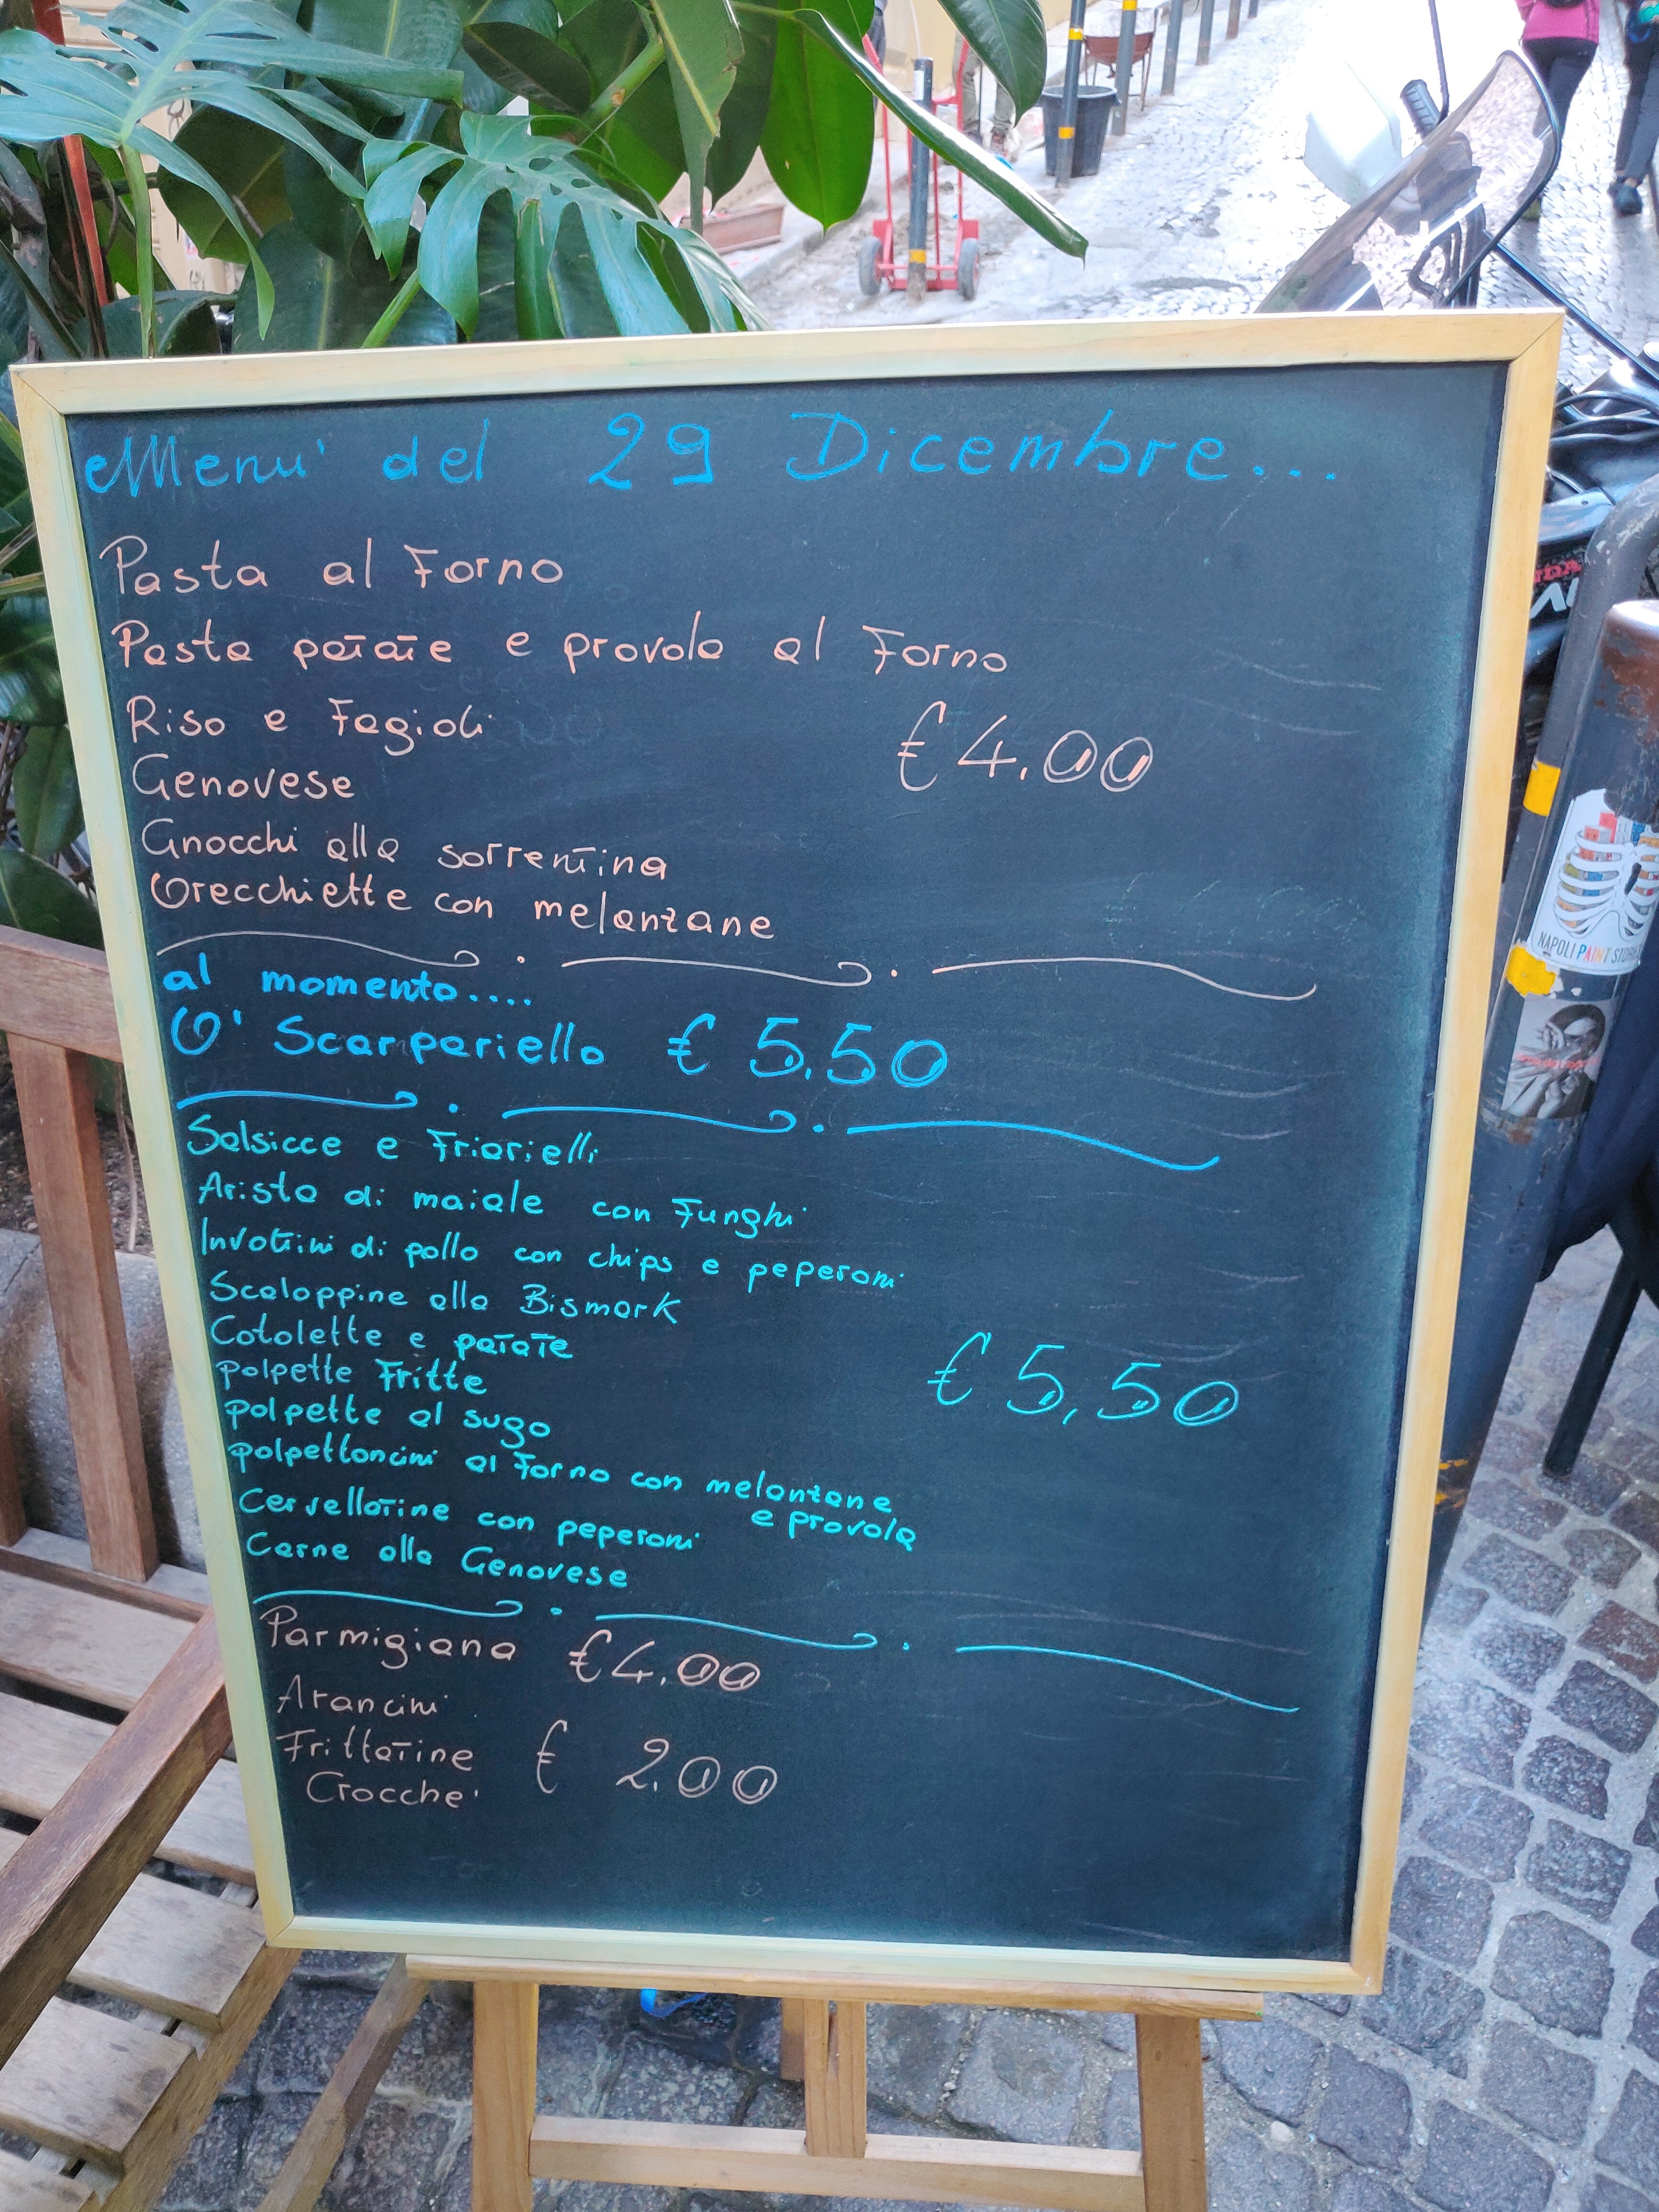 Menu' del 29 Dicembre...
Pasta al Forno
Pasta patate e provola al Forno
Riso e Fagioli
€ 4.00
Genovese
Gnocchi alla sorrentina
Orecchiette con melanzane
al momento....
O' Scarpariello € 5.50
Salsicce e Friarielli
Arista di maiale con Funghi
Involtini di pollo con chips e peperoni
Scaloppine alla Bismark
Cotolette e patate
€ 5,50
polpette Fritte
polpette al sugo
polpettoncini al Forno con melanzane
e provola
Cervellatine con peperoni
Carne alla Genovese
Parmigiana €4.00
Arancini
Frittatine € 2.00
Crocche'
NAPOLI PAINT STORIES